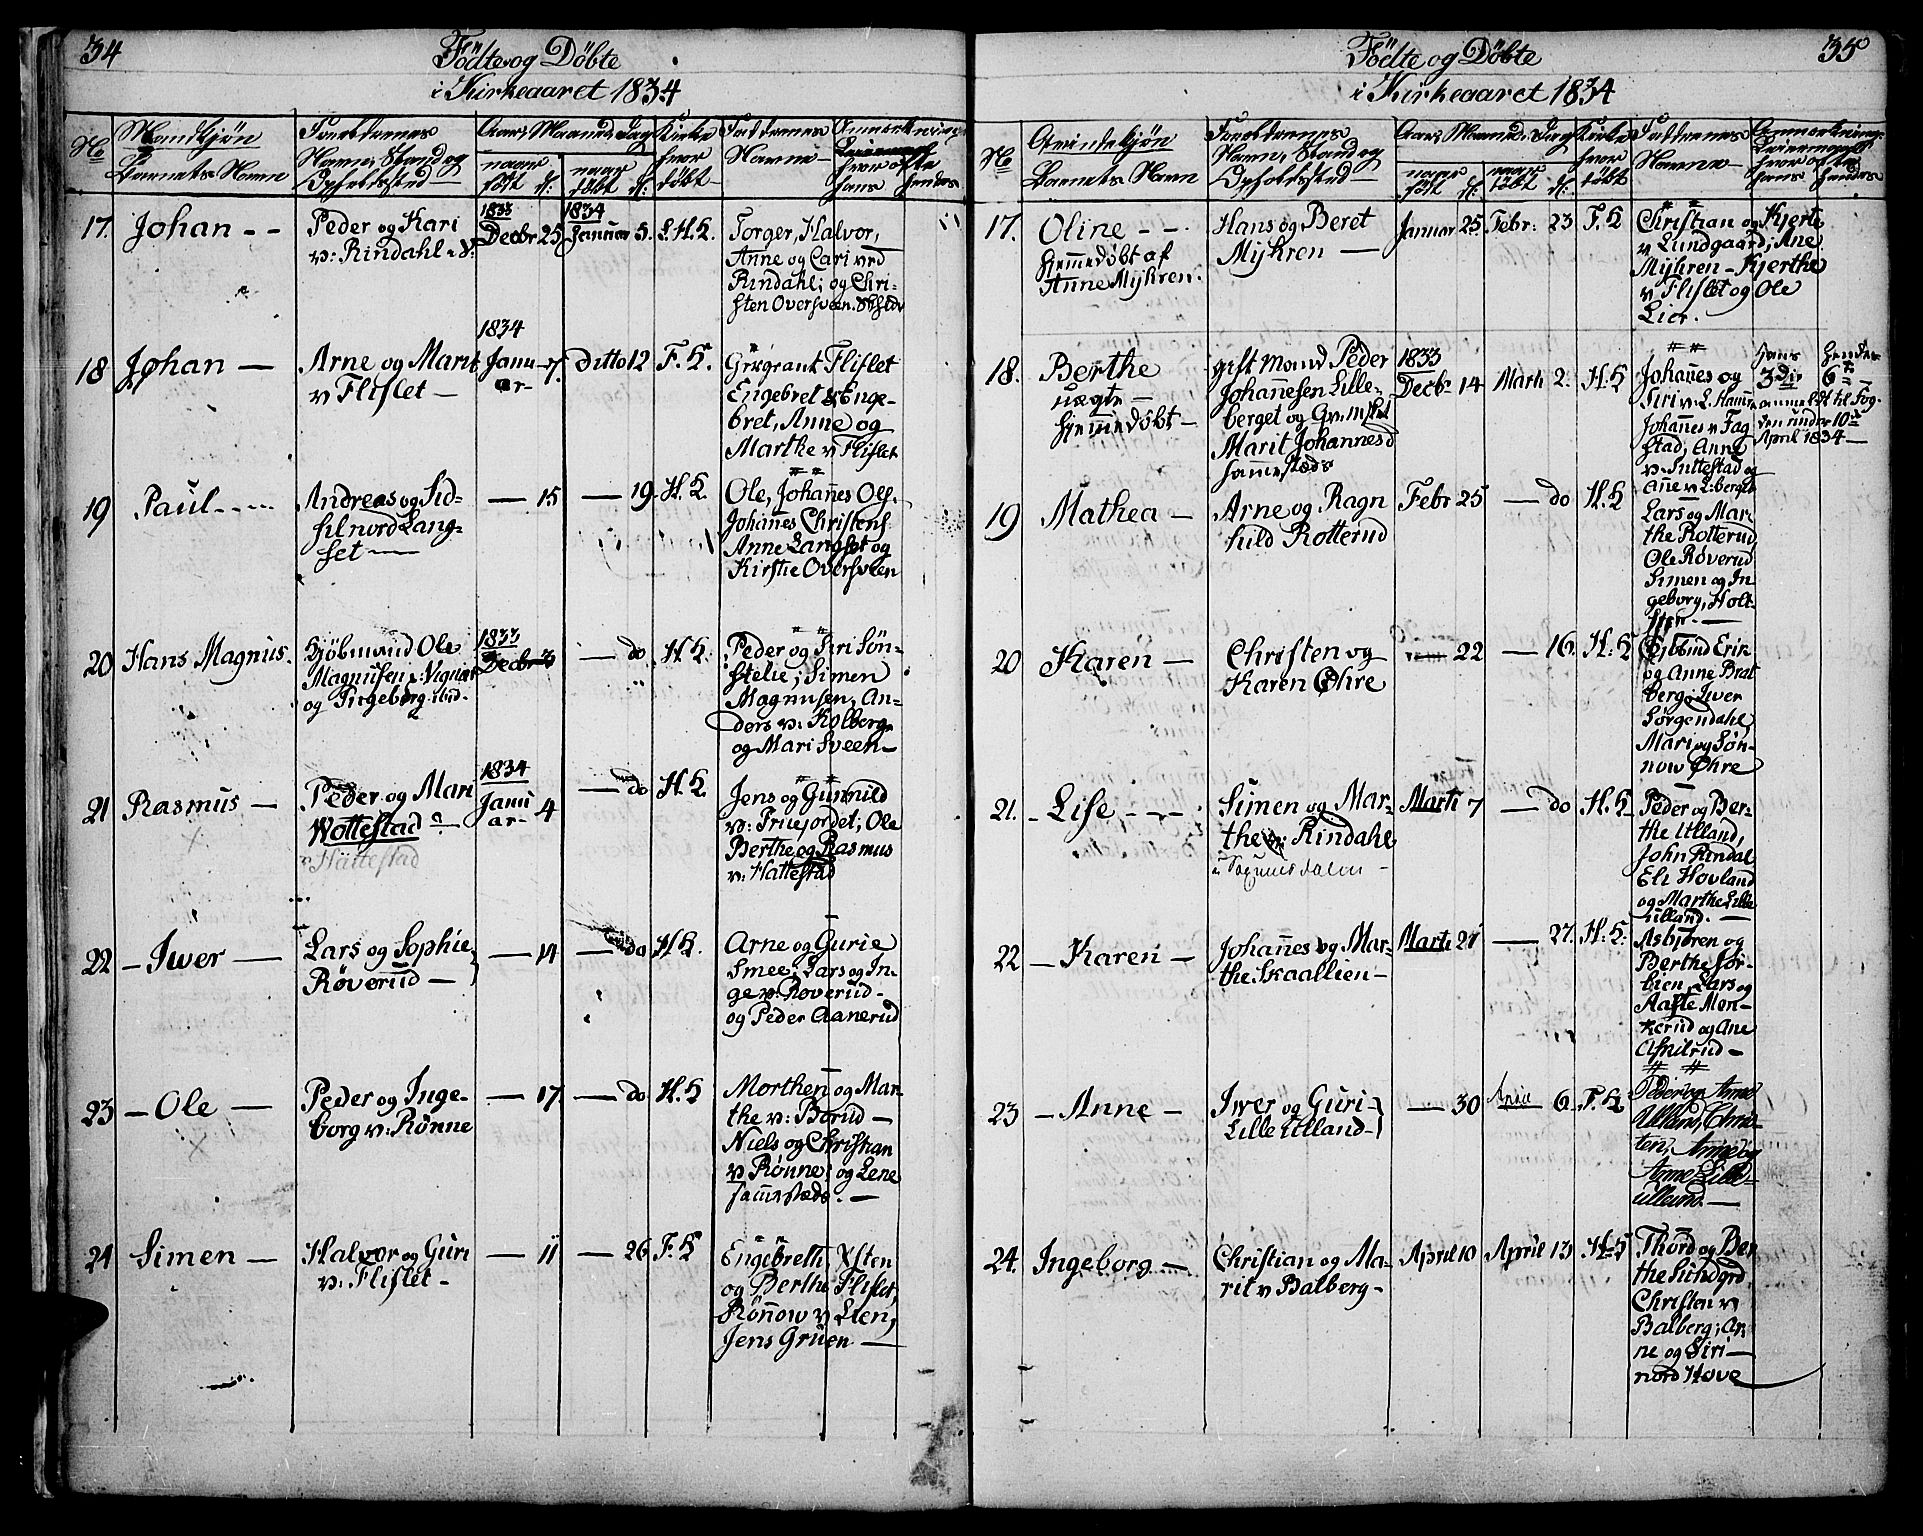 34
Födte og Döbte
i Kirkeaaret 1834
No
Mandkjön
Barnets Navn
Forældrenes
Navn, Stand og
Opholdssted
Aar, Maaned, Dag
naar födt d:
naar döbt d:
Kirke
hvor
döbt
Faddernes
Navne
Anmærkning
hvor ofte
hans hendes
17. Johan - -
Peder og Kari
v: Rindahl
1833
Decbr 25
1834
Januar 5.
L.H.K.
Torger, Halvor,
Anne og Cari ved
Rindahl; og Chri-
sten Oversveen.
18 Johan —
Arne og Marit
v Flislet —
1834
Janu- 7.
ar-
ditto 12
F. K.
Flislet
Engebret & Enge-
bret, Anne og
Marthe v Flislet
19 Paul - - - -
Andreas og Sid-
sil nord Lang-
set —
— 15
— 19.
H. K.
Ole, Johanes Ols.
Johanes Christens.
Anne Langset og
Kirstie Oversveen
20 Hans Magnus.
Kjöbmand Ole
Magnusen
og Ingeborg ibid.
1833
Decbr 3
— do
H. K.
Peder og Siri Sön-
stelie; Simen
Magnusen, An-
ders v: Kolberg
og Mari Sveen—
21 Rasmus —
Peder og Mari
Wottestad
v Hattestad
1834
Janu 4
ar-
— do
H. K.
Jens og Gunnild
v: Friefordet; Ole
Berthe og Rasmus
v: Hattestad
22 — Iwer —
Lars og Sophie
Röverud —
— 14
— do
H K.
Arne og Gurie
Smee, Lars og In-
ge v: Röverud -
og Peder Aanerud
23 — Ole —
Peder og Inge-
borg v: Rönne
— 17
— do
H. K
Morthen og Mar-
the v: Borud —
Niels og Christian
v: Rönne; og Lene
sammesteds. —
24 Simen —
Halvor og Guri
v: Flislet -
— 11
— 26
F. K
Engebreth, Ysten
og Berthe Flislet,
Rönnow v Lien,
Jens Gruen —
35
Födte og Döbte
i Kirkeaaret 1834
No
Qvindekjön
Barnets Navn
Forældrenes
Navn, Stand og
Opholdssted
Aar, Maaned, Dag
naar födt d:
naar döbt d:
Kirke
hvor
döbt
Faddernes
Navne
Anmærkning
Leiermaal
hvor ofte
hans hendes
17. Oline - -
hjemmedöbt af
Anne Myhren.
Hans og Beret
Myhren —
Januar 25.
Febr: 23
F. K
Christian og Kjerte
v Lundgaard; Ane
Myhren - Kjerthe
v Flislet og Ole
Lier.
18. Berthe
uægte —
hjemmedöbt —
gift mand Peder
Johannesen Lille-
berget og
Marit Johannesd
sammesteds
1833
Decbr 14
Marti 2.
H. K
Johanes og
Siri v: L. Hamre
Johanes v Fag
stad, Anne
v: Suttestad og
ane v L: berget
hans hendes
3die 6te
anmeldt til Fog-
den under 10de
April 1834 —
19 Mathea —
Arne og Ragn
hild Rotterud
Febr 25
— do
H. K
Lars og Mari
the Rotterud,
Ole Röverud
Simen og In
geborg, Holt-
20 Karen —
Christen og
Karen Öhre
— 22
— 16.
H. K
Erik
og Anne Brat
berg; Iwer
Sörgendahl,
Mari og Sön-
now Öhre
21. - Lise - - -
Simen og Mar-
the v: Rindahl
Marti 7
— do
H. K
Peder og Ber-
the Ulland,
John Rindal
Eli Hovland
og Marthe Lille
ulland. —
22 — Karen —
Johanes og Mar-
the Skaallien —
Marti 21
— 27.
H: K:
Asbjören og
Berthe Sör-
lien, Lars og
Aaste Mon-
kerud og Ane
Asnilrud —
23 — Anne —
Iwer og Guri
Lille Ulland -
— 30
6.
F. K
Peder og Anne
Ulland, Chris-
ten, Anne og
Anne Lille-
ulland. —
24. Ingeborg —
Christian og Ma-
rit v Balberg -
April 10
April 13
H. K
Thord og Ber
the
Christen v
Balberg; Ar
ne og Siri —
nord Hove